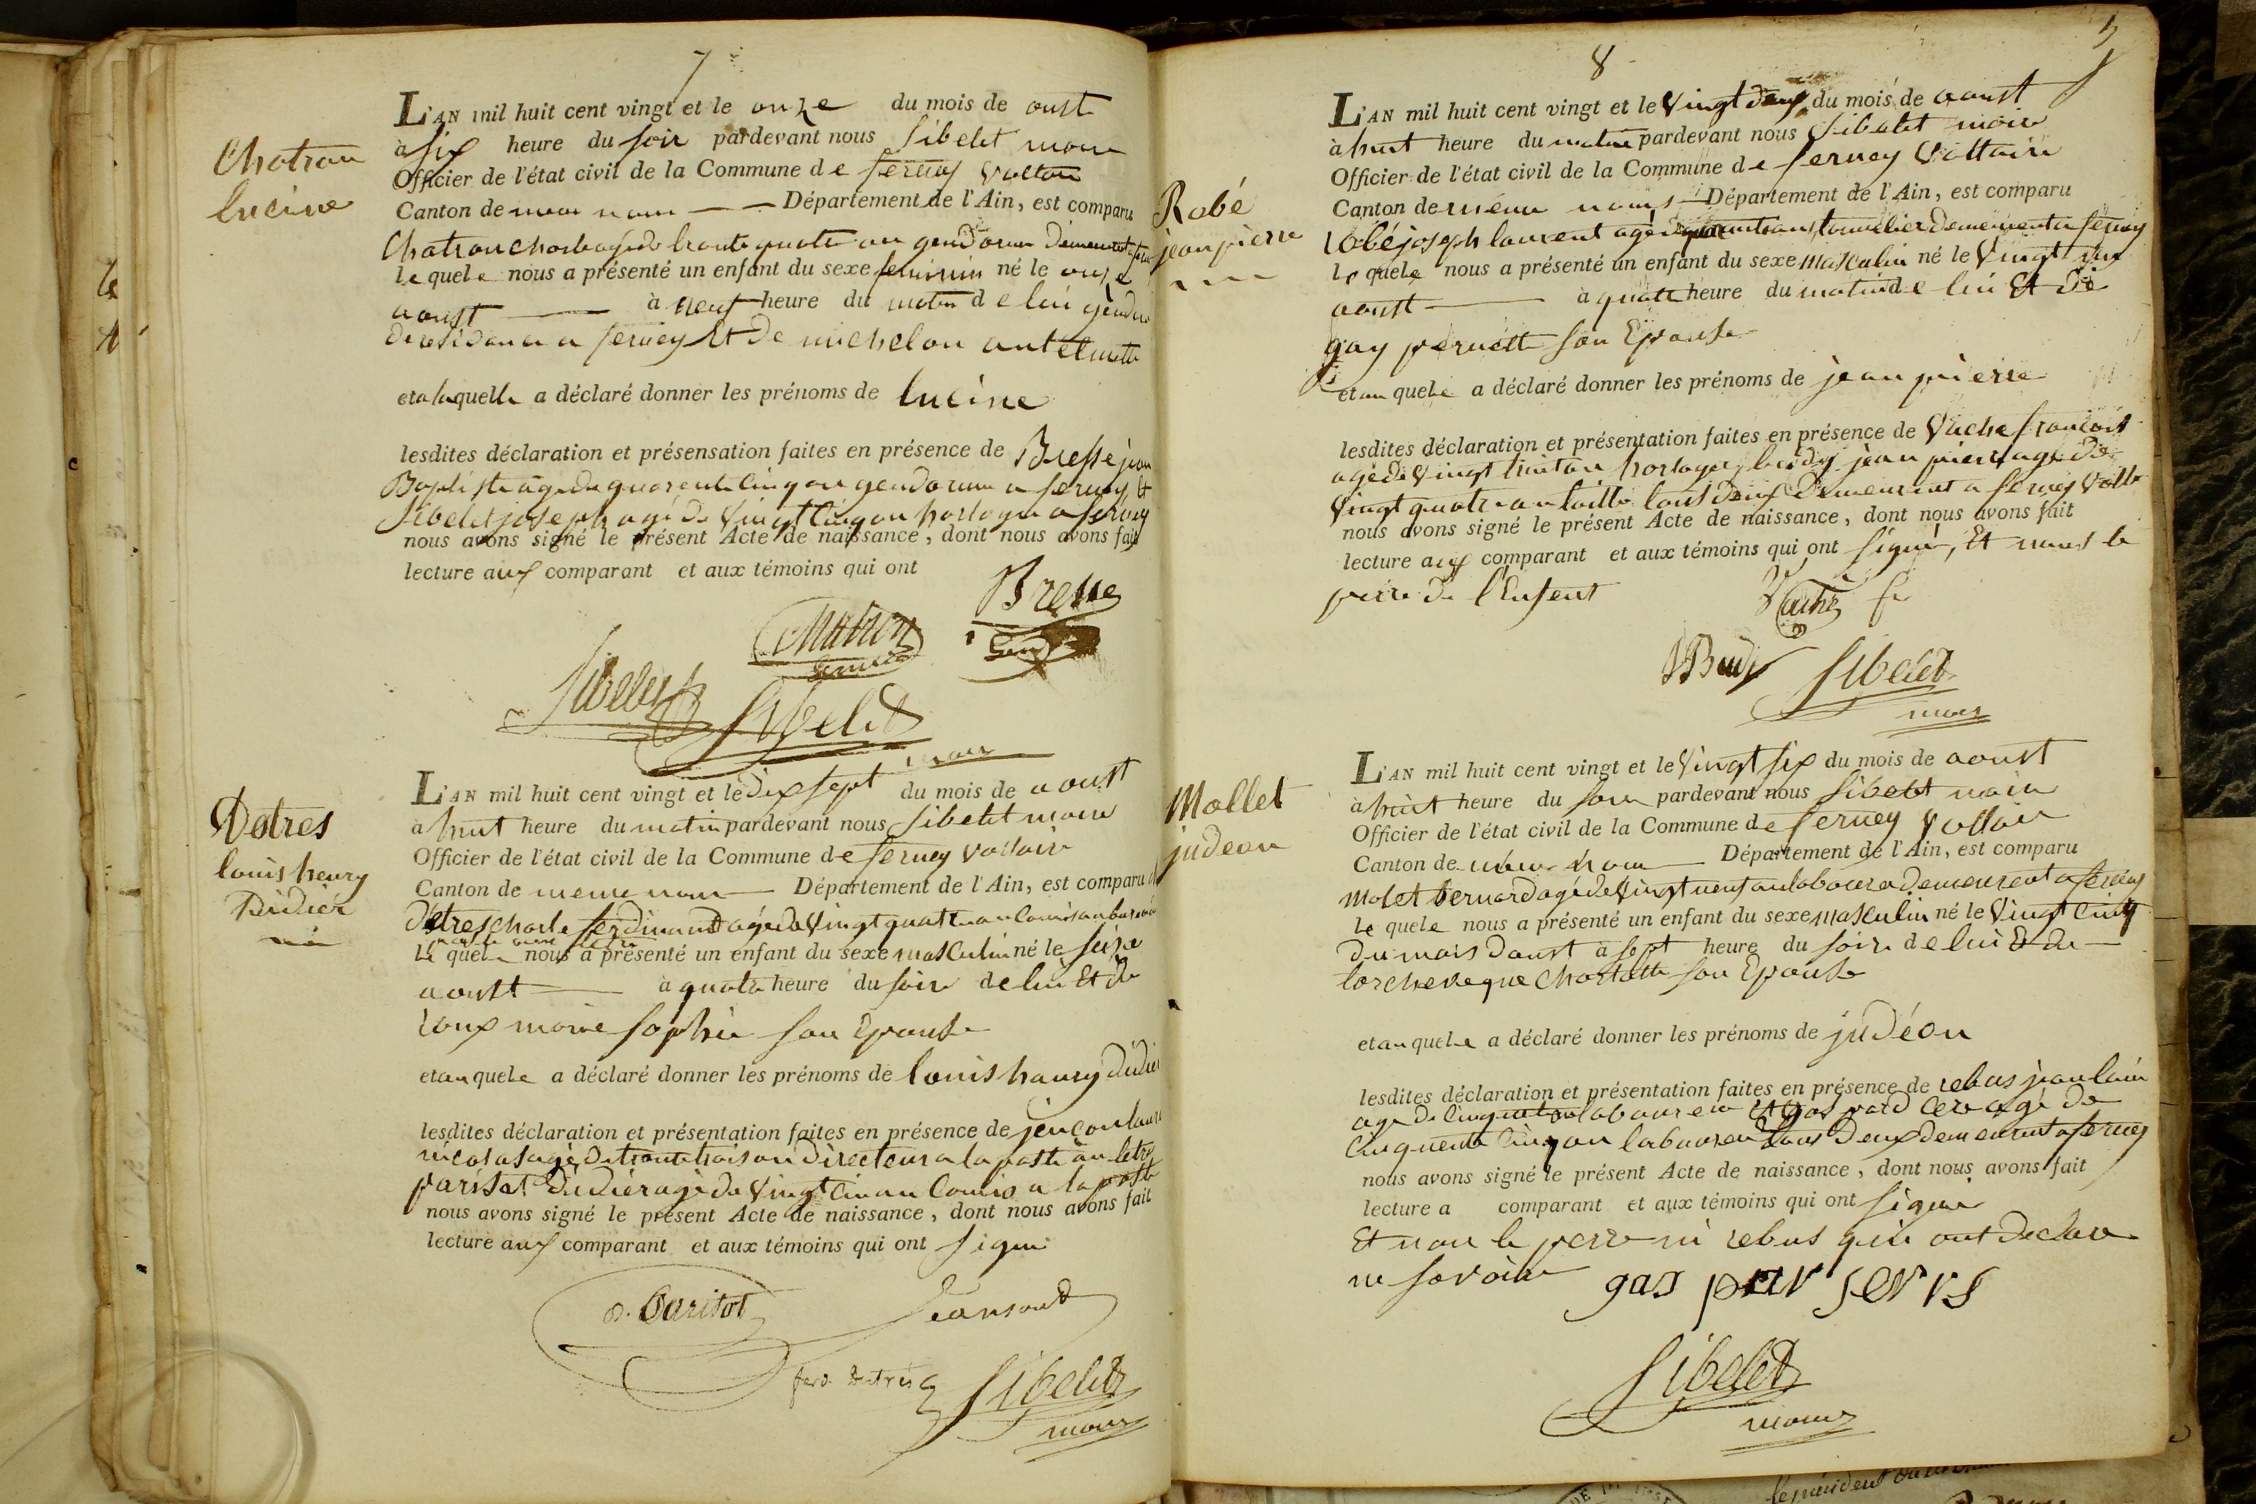 7
Chatron
lucine
L'AN mil huit cent vingt et le onze du mois de oust
à six heure du soir pardevant nous Sibelet maire
Officier de l'état civil de la Commune de ferney Voltaire
Canton de meme nom Département de l'Ain, est comparu
Chatron Charle agé de trante quatre an gendarme demeurent a
le quele nous a présenté un enfant du sexe feminin né le onze
aoust à neuf heure du matin de lui gendarme
de residance a ferney Et De michelon antelmette
et a laquelle a déclaré donner les prénoms de lucine
lesdites déclaration et présensation faites en présence de Bresse jean
Baptiste agé de quarente cinq an gendarme a ferney Et
Sibelet joseph agé de Vingt cinq an horloger a ferney
nous avons signé le présent Acte de naissance, dont nous avons fait
lecture aux comparant et aux témoins qui ont
Bresse
Chatron
Sibelet
Sibelet
maire
Detres
louis henry
Didier
L'AN mil huit cent vingt et le dix sept du mois de aoust
à huit heure du matin pardevant nous Sibelet maire
Officier de l'état civil de la Commune de ferney Voltaire
Canton de meme nom Département de l'Ain, est comparu
Detres Charle ferdinand agé de Vingt quatre an Comis au bureau
le quele nous a présenté un enfant du sexe masculin né le seize
aoustt à quatre heure du soire de lui Et De
roux marie sophie son Epouse
et au quele a déclaré donner les prénoms de louis henry didier
lesdites déclaration et présentation faites en présence de
nicolas agé de trante trois an directeur a la poste au letre
pariset Didier agé de Vingt cin an Comis a la poste
nous avons signé le présent Acte de naissance, dont nous avons fait
lecture aux comparant et aux témoins qui ont signé
D. Parisot
ferd. Detres
Sibelet
maire
8
Robé
jean pierre
L'AN mil huit cent vingt et le Vingt deux du mois de aoust
à huit heure du matin pardevant nous Sibelet maire
Officier de l'état civil de la Commune de ferney Voltaire
Canton de meme noms Département de l'Ain, est comparu
robé joseph laurent agé de trans tonnelier demeurent a ferney
le quele nous a présenté un enfant du sexe masculin né le Vingt un
aoust à quatre heure du matin de lui Et De
gay pernette son Epouse
et au quele a déclaré donner les prénoms de jean pierre
lesdites déclaration et présentation faites en présence de Vache francois
agé de Vingt huit an horloger, budy jean pierre agé de
Vingt quatre an tous deux demeurent a ferney Volt
nous avons signé le présent Acte de naissance, dont nous avons fait
lecture aux comparant et aux témoins qui ont signé, Et nomes le
perre de l'Enfent
Vache fr
Budy
Sibelet
maire
Mollet
judeon
L'AN mil huit cent vingt et le Vingt six du mois de aoust
à huit heure du soire pardevant nous Sibelet maire
Officier de l'état civil de la Commune de ferney Voltaire
Canton de meme nom Département de l'Ain, est comparu
Molet bernard agé de Vingt neuf an laboureur demeurent a ferney
le quele nous a présenté un enfant du sexe masculin né le Vingt cinq
du mois daust à sept heure du soire de lui Et de
larcheveque Charlotte son Epouse
et au quele a déclaré donner les prénoms de judéon
lesdites déclaration et présentation faites en présence de rebus jean louis
agé de cinquent an laboureur Et gaspard agé de
Cinquente cinq an laboureur tous Deux demeurent a ferney
nous avons signé le présent Acte de naissance, dont nous avons fait
lecture a comparant et aux témoins qui ont signé
Et non le perre ni rebus qui ont declare
ne savoire
gas par servs
Sibelet
maire